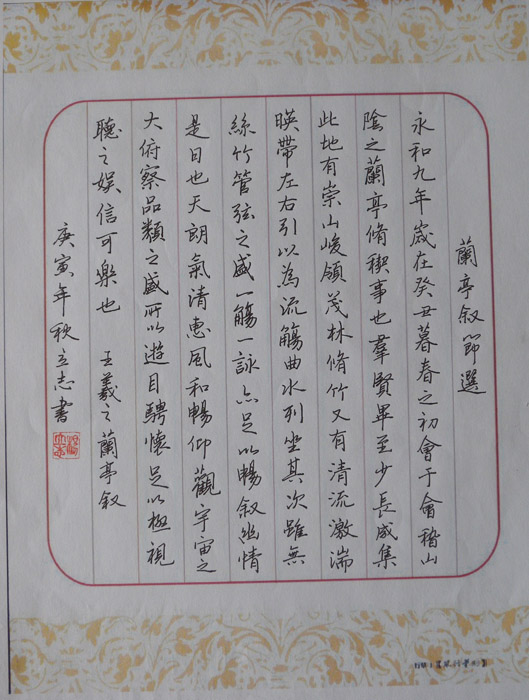 蘭亭叙節選
永和九年歲在癸丑暮春之初會于會稽山
陰之蘭亭脩稧事也羣賢畢至少長咸集
此地有崇山峻領茂林脩竹又有清流激湍
暎帶左右引以為流觴曲水列坐其次雖無
絲竹管弦之盛一觴一詠亦足以暢叙幽情
是日也天朗氣清惠風和暢仰觀宇宙之
大俯察品類之盛所以遊目騁懷足以極視
聽之娛信可樂也 王羲之蘭亭叙
庚寅年秋立志書